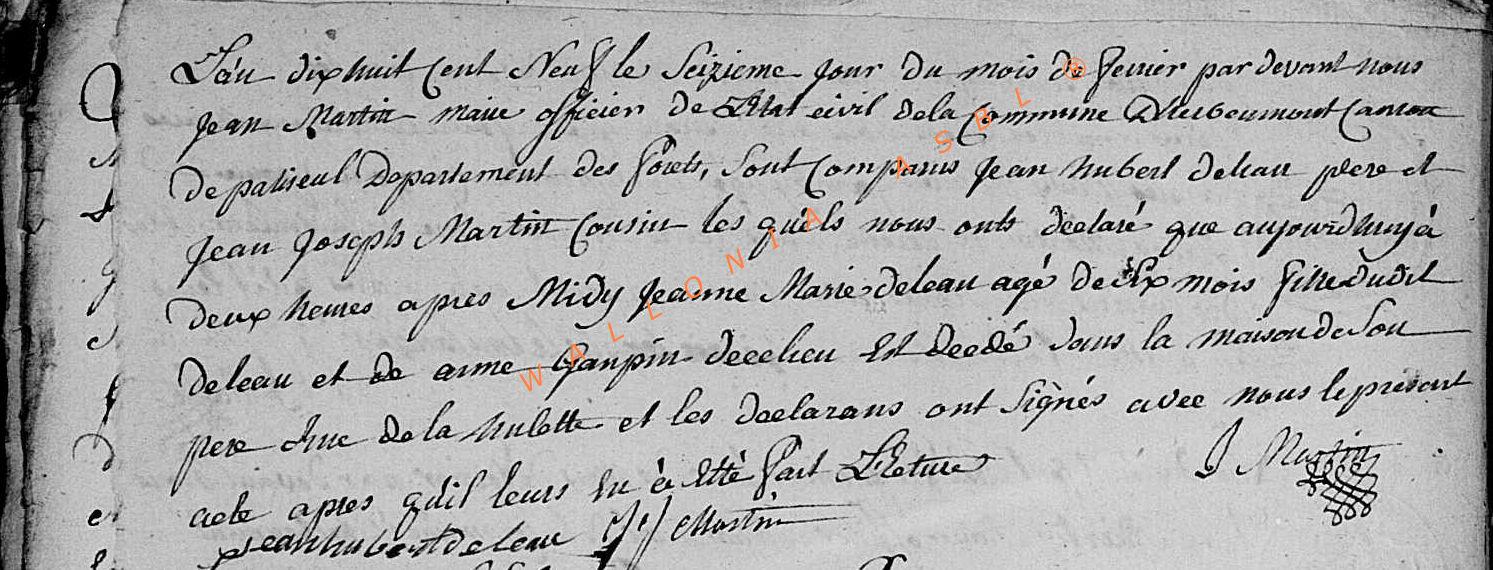 L'an dixhuit Cent Neuf le Seizieme jour du mois de fevrier par devant nous
Jean Martin maire officier de L'Etat civil de la Commune D'auboumont Canton
de paliseul Departement des forets, Sont Comparus Jean hubert deleau pere et
Jean Joseph Martin Cousin les quéls nous onts declaré que aujourdhuy à
deux heures apres Midy Jeanne Marie deleau agé de Six mois fille dudit
deleau et de anne Gaupin decelieu Est decdé dans la maison de Son
pere Rue de la hulotte et les declarans ont Signés avec nous le present
acte apres qu'il leurs En à Etté fait LEcture
J Martin
jean hubert de leau J J Martin
WALLONIA ASBL ®